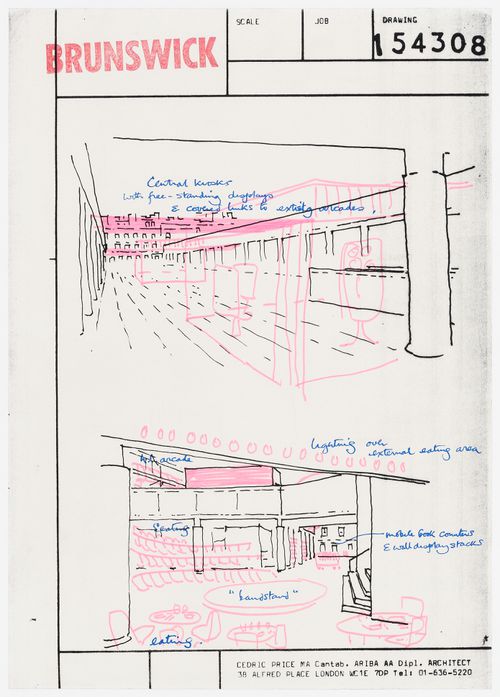 BRUNSWICK
SCALE
JOB
DRAWING
154308
Central kiosks
with free-standing displays
& covered links to existg arcades,
Lighting over
external eating area
arcade
Seating
mobile book counters
& wall display stacks
"bandstand"
eating.
CEDRIC PRICE MA Cantab. ARIBA AA Dipl. ARCHITECT
38 ALFRED PLACE LONDON WC1E 7DP Tel: 01-636-5220